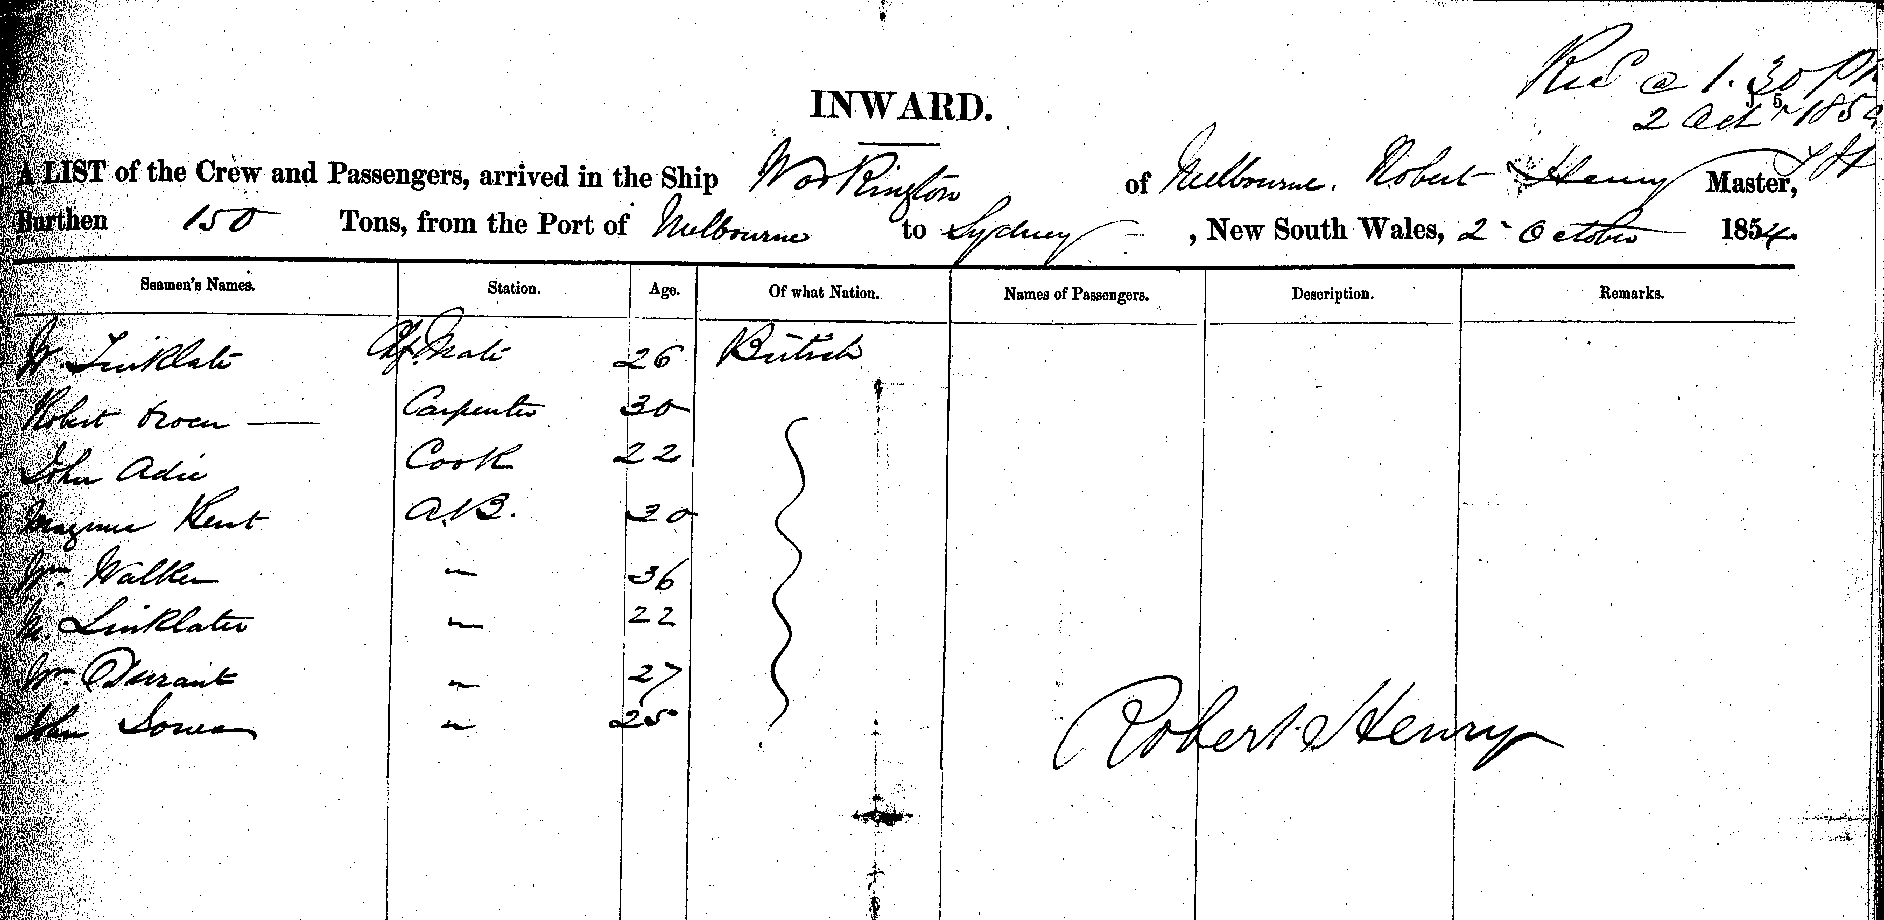 Recd @ 1.30 PM
2 Oct 185
INWARD.
A LIST of the Crew and Passengers, arrived in the Ship Workington of Melbourne. Robert Henry Master,
Burthen 150 Tons, from the Port of Melbourne to Sydney, New South Wales, 2 October 1854.
Seamen's Names. Station. Age. Of what Nation. Names of Passengers. Description. Remarks.
W. Linklater Chf. Mate 26 British
Robert Carpenter 30
John Adie Cook 22
Magnus Kent A.B. 20
Wm. Walker " 36
Linklater " 22
Wm. Durrant " 27
John " 25
Robert Henry